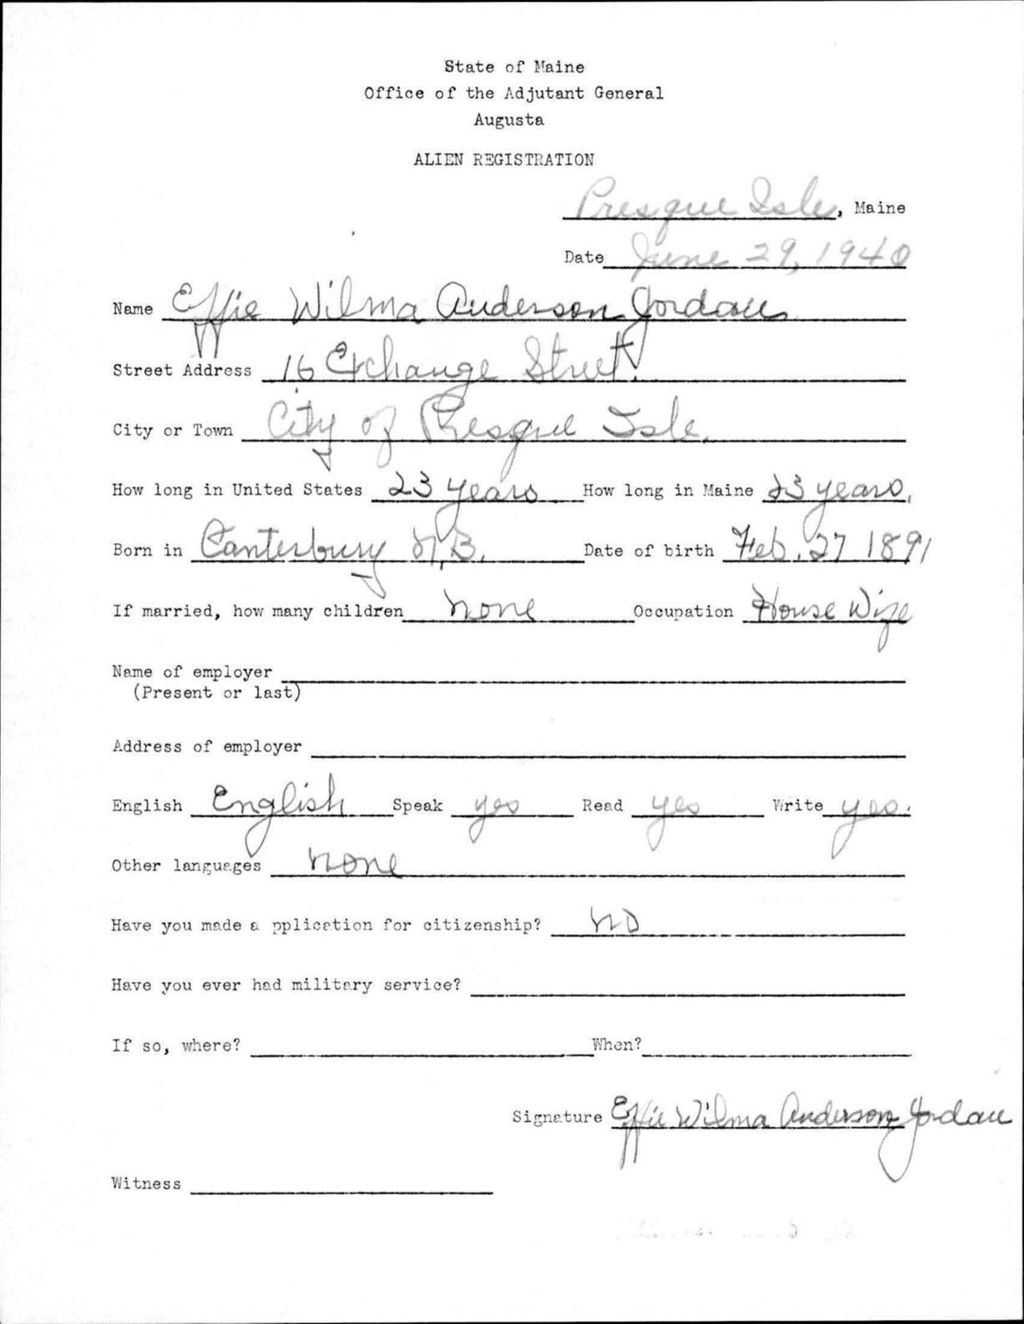 State of Maine
Office of the Adjutant General
Augusta
ALIEN REGISTRATION
Presque Isle, Maine
Date June 29, 1940
Name Effie Wilma Anderson Jordan
Street Address 16 Exchange Street.
City or Town City of Presque Isle.
How long in United States 23 years How long in Maine 23 years.
Born in Canterbury N.B. Date of birth Feb. 27 1891
If married, how many children none Occupation House Wife
Name of employer
(Present or last)
Address of employer
English English Speak yes Read yes Write yes.
Other languages none
Have you made a pplication for citizenship? no
Have you ever had military service?
If so, where? When?
Signature Effie Wilma Anderson Jordan
Witness